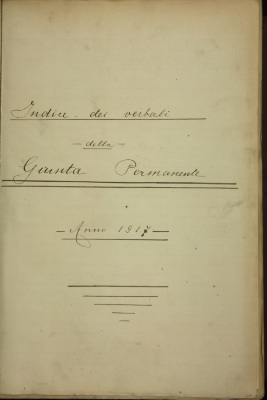 Indice dei verbali
— della —
Giunta Permanente
— Anno 1917 —